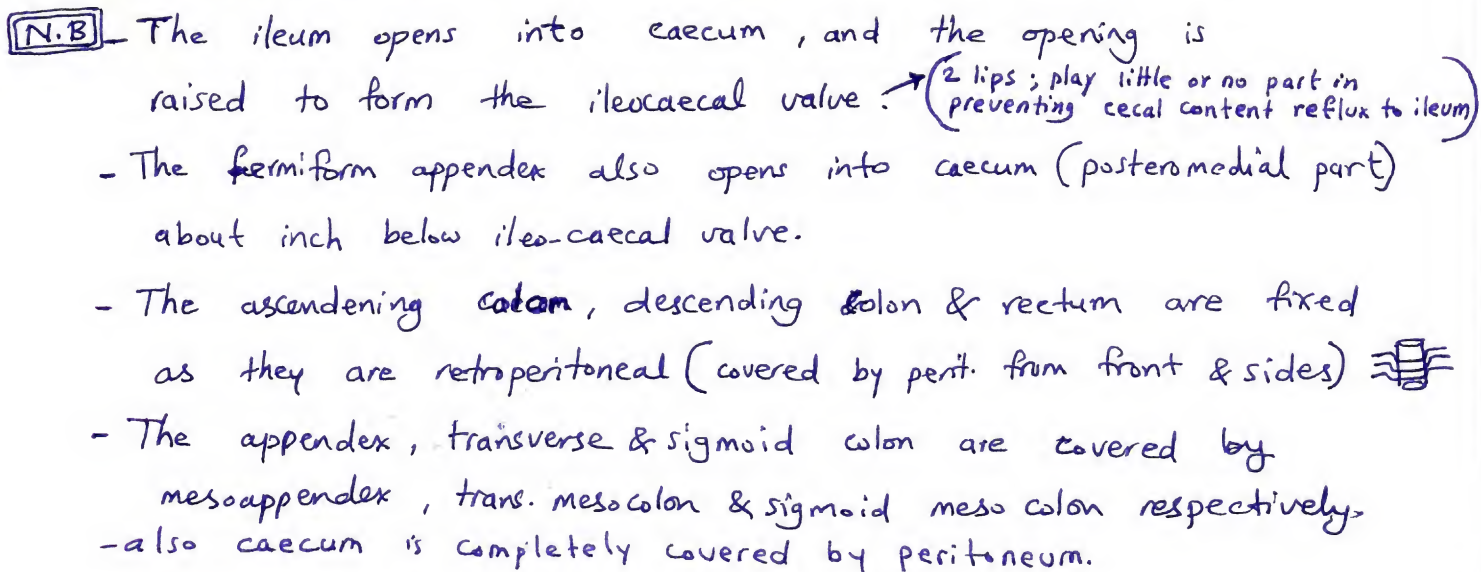 N.B - The ileum opens into caecum, and the opening is
raised to form the ileocaecal valve. → (2 lips; play little or no part in
preventing cecal content reflux to ileum)
- The fermiform appendex also opens into caecum (posteromedial part)
about inch below ileo-caecal valve.
- The ascendening colon, descending colon & rectum are fixed
as they are retroperitoneal (covered by perit. from front & sides)
- The appendex, transverse & sigmoid colon are covered by
mesoappendex, trans. mesocolon & sigmoid meso colon respectively.
- also caecum is completely covered by peritoneum.